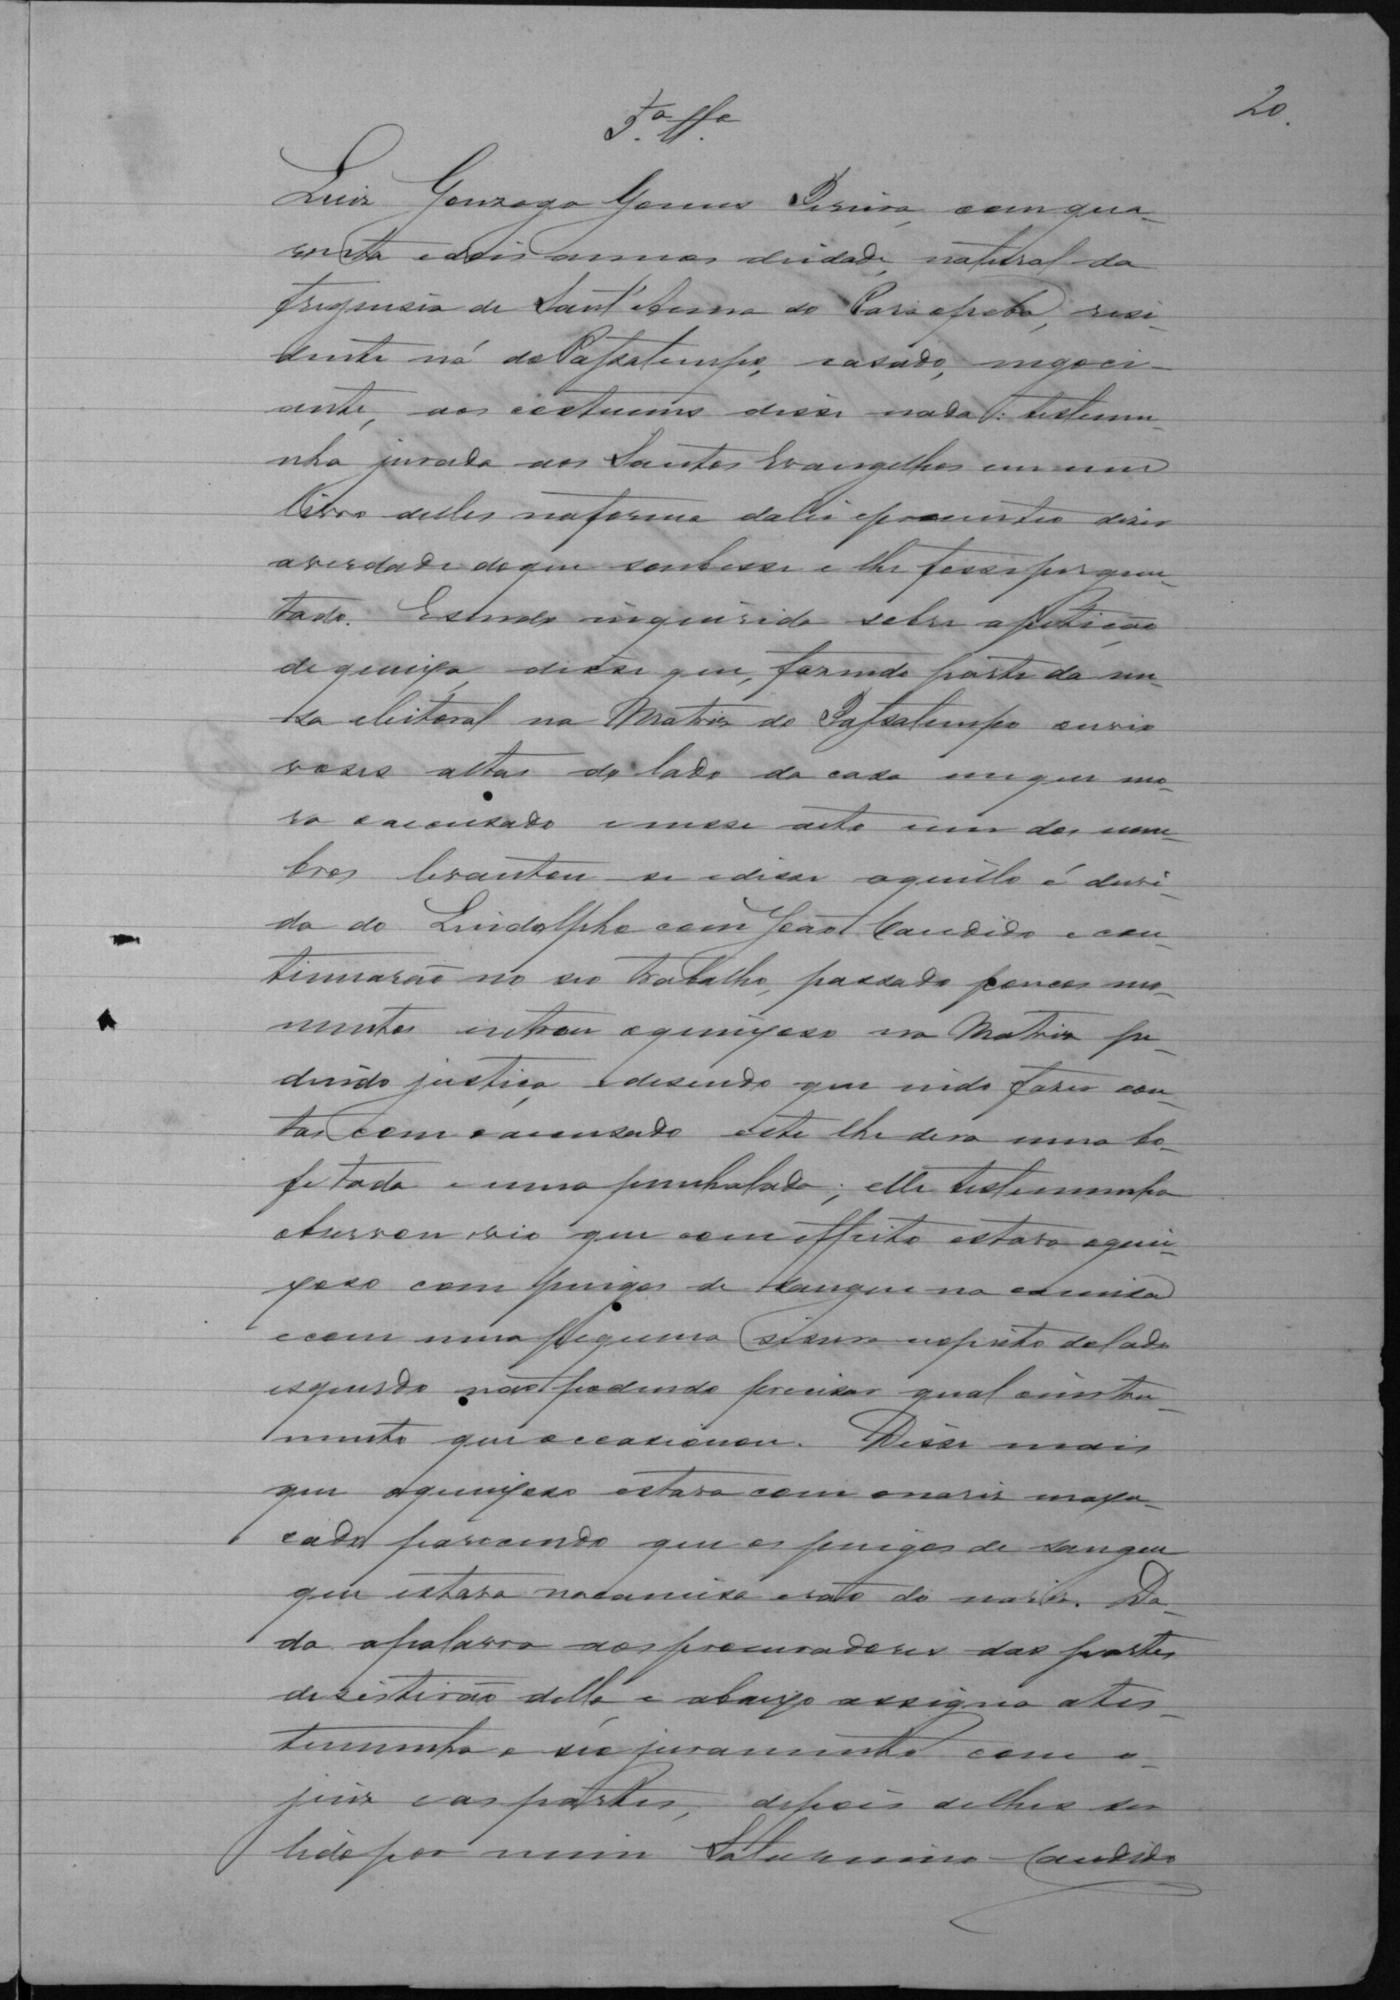 20.
5.ª Tt.ª
Luiz Gonzaga Gomes Pereira, com qua-
renta e dois annos deidade, natural da
freguesia de Sant'Anna do Paraopeba, resi-
dente na do Passatempo, casado, negoci-
ante, aos costumes disse nada: testemu-
nha jurada aos Santos Evangelhos em um
livro delles naforma dalei eprometteo dizer
averdade doque soubesse e lhe fosse pergun-
tado. Esendo inquirido sobre apetição
de queixa disse que, fazendo parte da me-
sa eleitoral na Matriz do Passatempo ouvio
vozes altas do lado da casa emque mo-
ra oaccusado e nesse acto um dos mem-
bros levantou se edisse aquillo é duvi-
da do Lindolpho com João Candido e con-
tinuarão no seo trabalho, passado poucos mo-
mentos entrou oqueixoso na Matriz pe-
dindo justiça edisendo que indo fazer con-
tas com oaccusado este lhe dera uma bo-
fetada e uma punhalada; elle testemunha
observou e vio que com effeito estava oquei-
xoso com pingos de sangue na camisa
ecom uma pequena sisura nopeito dolado
esquerdo não podendo precisar qual oinstru-
mento que occasionou. Disse mais
que oqueixoso estava com onariz maxu-
cado parecendo que os pingos de sangue
que estava nacamisa erão do nariz. Da-
da apalavra aos procuradores das partes
desistirão della e abaixo assigna ates-
temunha o seo juramento com o
juiz eas partes, depois delhes ser
lido por mim Saturnino Candido